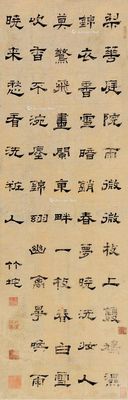 梨華庭院雨微微枝上鳩濕
錦衣香雪暗銷春夢曉洗妝人
莫驚飛畫闌東畔一枝春白雪
吹香不涴塵錦翎幽禽學喚雨
曉來愁看洗粧人竹垞